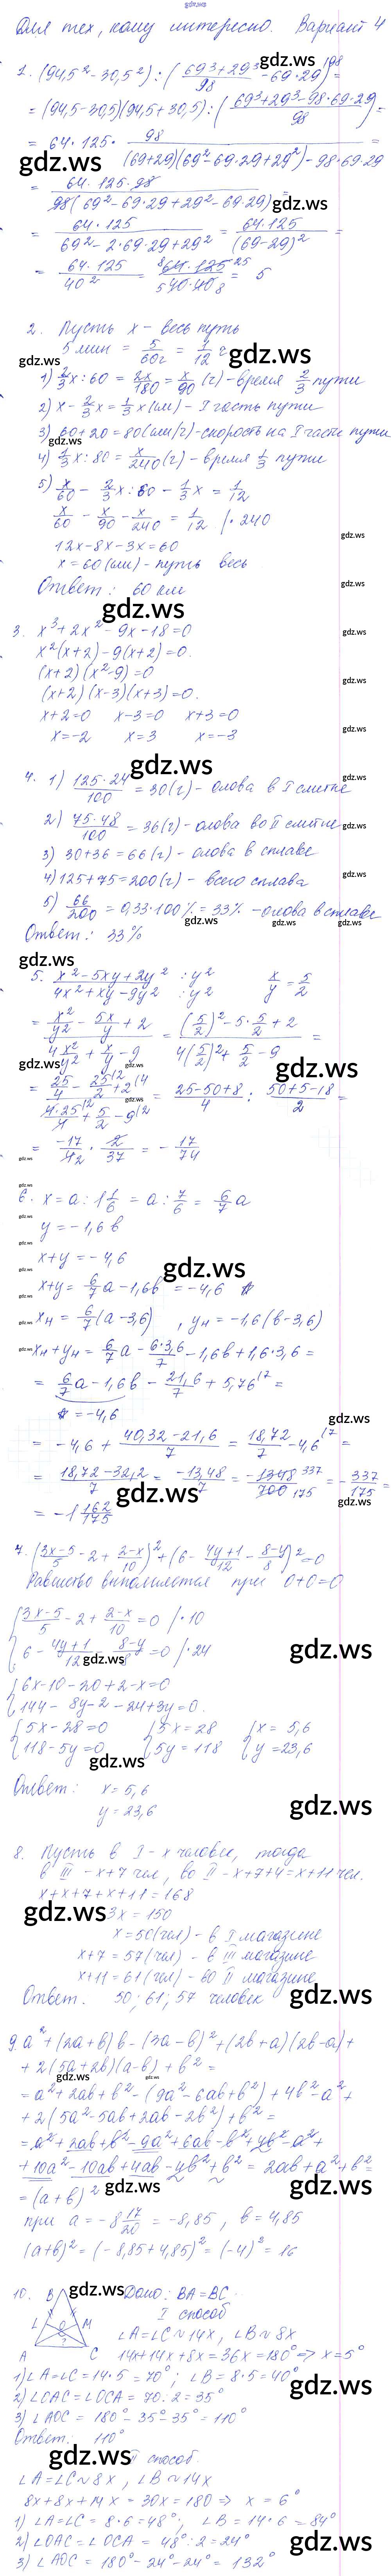 Для тех, кому интересно. Вариант 4
1. (94,5² - 30,5²) : ( (69³ + 29³)/98 - 69·29 ) =
= (94,5-30,5)(94,5+30,5) : ( (69³+29³-98·69·29)/98 ) =
= 64·125 · 98/((69+29)(69²-69·29+29²)-98·69·29) =
= 64·125·98/(98(69²-69·29+29²-69·29)) =
= 64·125/(69²-2·69·29+29²) = 64·125/(69-29)² =
= 64·125/40² = 64·125/(40·40) = 5
2. Пусть x - весь путь
5 мин = 5/60 г = 1/12 г
1) 2/3 x : 60 = 2x/180 = x/90 (г) - время 2/3 пути
2) x - 2/3 x = 1/3 x (км) - I часть пути
3) 60+20=80 (км/г) - скорость на I части пути
4) 1/3 x : 80 = x/240 (г) - время 1/3 пути
5) x/60 - 2/3 x : 60 - 1/3 x = 1/12
x/60 - x/90 - x/240 = 1/12 |·240
12x-8x-3x=60
x=60 (км) - путь весь
Ответ: 60 км
3. x³+2x²-9x-18=0
x²(x+2)-9(x+2)=0.
(x+2)(x²-9)=0
(x+2)(x-3)(x+3)=0.
x+2=0 x-3=0 x+3=0
x=-2 x=3 x=-3
4. 1) 125·24/100 = 30 (г) - олова в I слитке
2) 75·48/100 = 36 (г) - олова во II слитке
3) 30+36=66 (г) - олова в сплаве
4) 125+75=200 (г) - всего сплава
5) 66/200 = 0,33·100% = 33% - олова в сплаве
Ответ: 33%
5. (x²-5xy+2y²)/(4x²+xy-9y²) :y² :y² x/y = 5/2
= (x²/y² - 5x/y + 2)/(4x²/y² + x/y - 9) = ((5/2)² - 5·5/2 + 2)/(4(5/2)² + 5/2 - 9) =
= (25/4 - 25/2 + 2)/(4·25/4 + 5/2 - 9) = (25-50+8)/4 : (50+5-18)/2 =
= -17/4 · 2/37 = -17/74
6. x = a : 1 1/6 = a : 7/6 = 6/7 a
y = -1,6b
x+y = -4,6
x+y = 6/7 a - 1,6b = -4,6
xн = 6/7 (a-3,6), yн = -1,6(b-3,6)
xн+yн = 6/7 a - 6·3,6/7 - 1,6b + 1,6·3,6 =
= 6/7 a - 1,6b - 21,6/7 + 5,76 =
= -4,6
= -4,6 + (40,32-21,6)/7 = 18,72/7 - 4,6 =
= (18,72-32,2)/7 = -13,48/7 = -1348/700 = -337/175 =
= -1 162/175
7. ((3x-5)/5 - 2 + (2-x)/10)² + (6 - (4y+1)/12 - (8-y)/8)² = 0
Равенство выполняется при 0+0=0
{(3x-5)/5 - 2 + (2-x)/10 = 0 |·10
{6 - (4y+1)/12 - (8-y)/8 = 0 |·24
{6x-10-20+2-x=0
{144-8y-2-24+3y=0.
{5x-28=0 {5x=28 {x=5,6
{118-5y=0 {5y=118 {y=23,6
Ответ: x=5,6
y=23,6
8. Пусть в I - x человек, тогда
в III - x+7 чел, во II - x+7+4=x+11 чел.
x+x+7+x+11=168
3x=150
x=50 (чел) - в I магазине
x+7=57 (чел) - в III магазине
x+11=61 (чел) - во II магазине
Ответ. 50; 61; 57 человек
9. a²+(2a+b)b-(3a-b)²+(2b+a)(2b-a)+
+2(5a+2b)(a-b)+b²=
=a²+2ab+b²-(9a²-6ab+b²)+4b²-a²+
+2(5a²-5ab+2ab-2b²)+b²=
=a²+2ab+b²-9a²+6ab-b²+4b²-a²+
+10a²-10ab+4ab-4b²+b²=2ab+a²+b²=
=(a+b)²
при a=-8 17/20=-8,85, b=4,85
(a+b)²=(-8,85+4,85)²=(-4)²=16
10. B Дано: BA=BC
I способ
L O M
∠A=∠C~14x, ∠B~8x
A C 14x+14x+8x=36x=180° => x=5°
1) ∠A=∠C=14·5=70°; ∠B=8·5=40°
2) ∠OAC=∠OCA=70:2=35°
3) ∠AOC=180°-35°-35°=110°
Ответ. 110°
II способ.
∠A=∠C~8x, ∠B~14x
8x+8x+14x=30x=180 => x=6°
1) ∠A=∠C=8·6=48°; ∠B=14·6=84°
2) ∠OAC=∠OCA=48°:2=24°
3) ∠AOC=180°-24°-24°=132°
gdz.ws